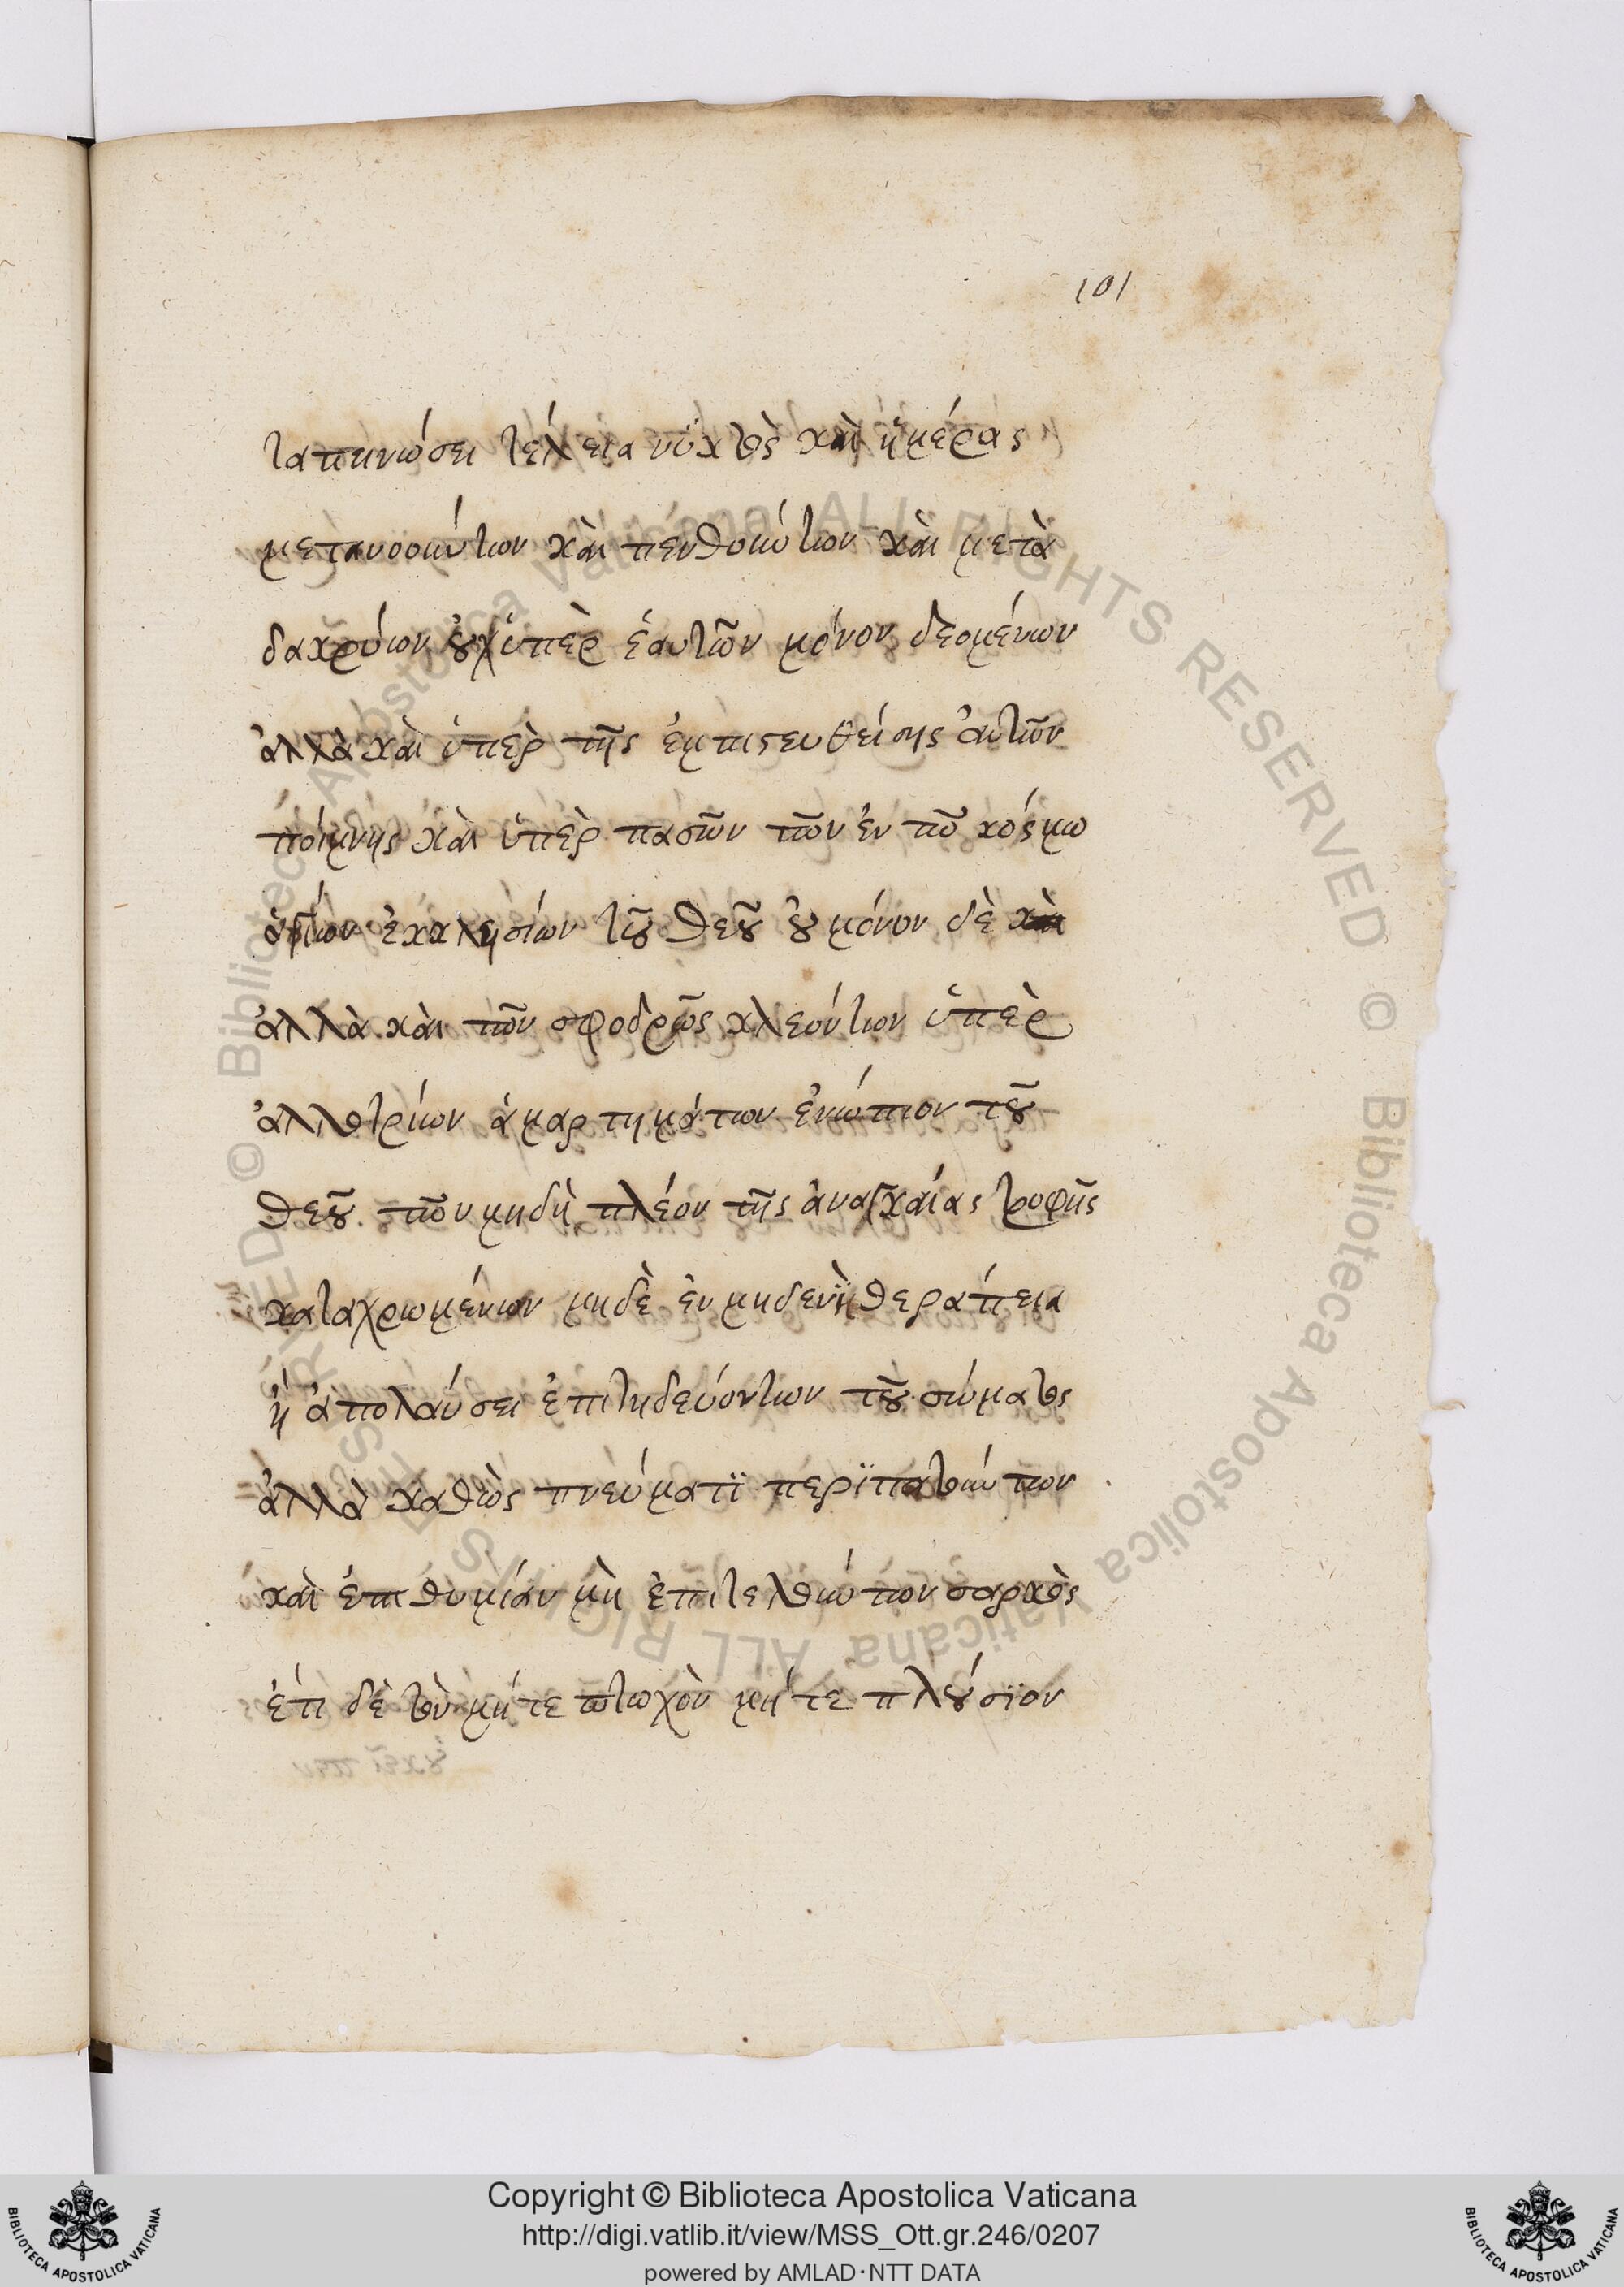 101
ταπεινώσει τελεία νϋκτὸς καὶ ἡμέρας
μετανοούντων καὶ πενθούντων καὶ μετὰ
δακρύων οὐχ ὑπὲρ ἑαυτῶν μόνον δεομένων
ἀλλὰ καὶ ὑπὲρ τῆς ἐμπιστευθείσης αὐτῶν
ποίμνης καὶ ὑπὲρ πασῶν τῶν ἐν τῶ κόσμω
ἁγίων ἐκκλησίων τοῦ θεοῦ οὐ μόνον δὲ
ἀλλὰ καὶ τῶν σφοδρῶς κλεόντων ὑπὲρ
ἀλλοτρίων ἁμαρτημάτων ἐνώπιον τοῦ
θεοῦ. τῶν μηδὲ πλέον τῆς ἀναγκαίας τροφῆς
καταχρωμένων μηδὲ ἐν μηδενὶ θεράπεια
ἢ ἀπολαύσει ἐπιτηδευόντων τοῦ σώματος
ἀλλὰ καθὼς πνεύματϊ περϊπατούντων
καὶ ἐπιθυμίαν μὴ ἐπιτελούντων σαρκὸς
ἔτι δὲ τὸν μήτε πτωχὸν μήτε πλούσϊον
Copyright © Biblioteca Apostolica Vaticana
http://digi.vatlib.it/view/MSS_Ott.gr.246/0207
powered by AMLAD·NTT DATA
BIBLIOTECA APOSTOLICA VATICANA
BIBLIOTECA APOSTOLICA VATICANA
© Biblioteca Apostolica Vaticana ALL RIGHTS RESERVED © Biblioteca Apostolica Vaticana ALL RIGHTS RESERVED